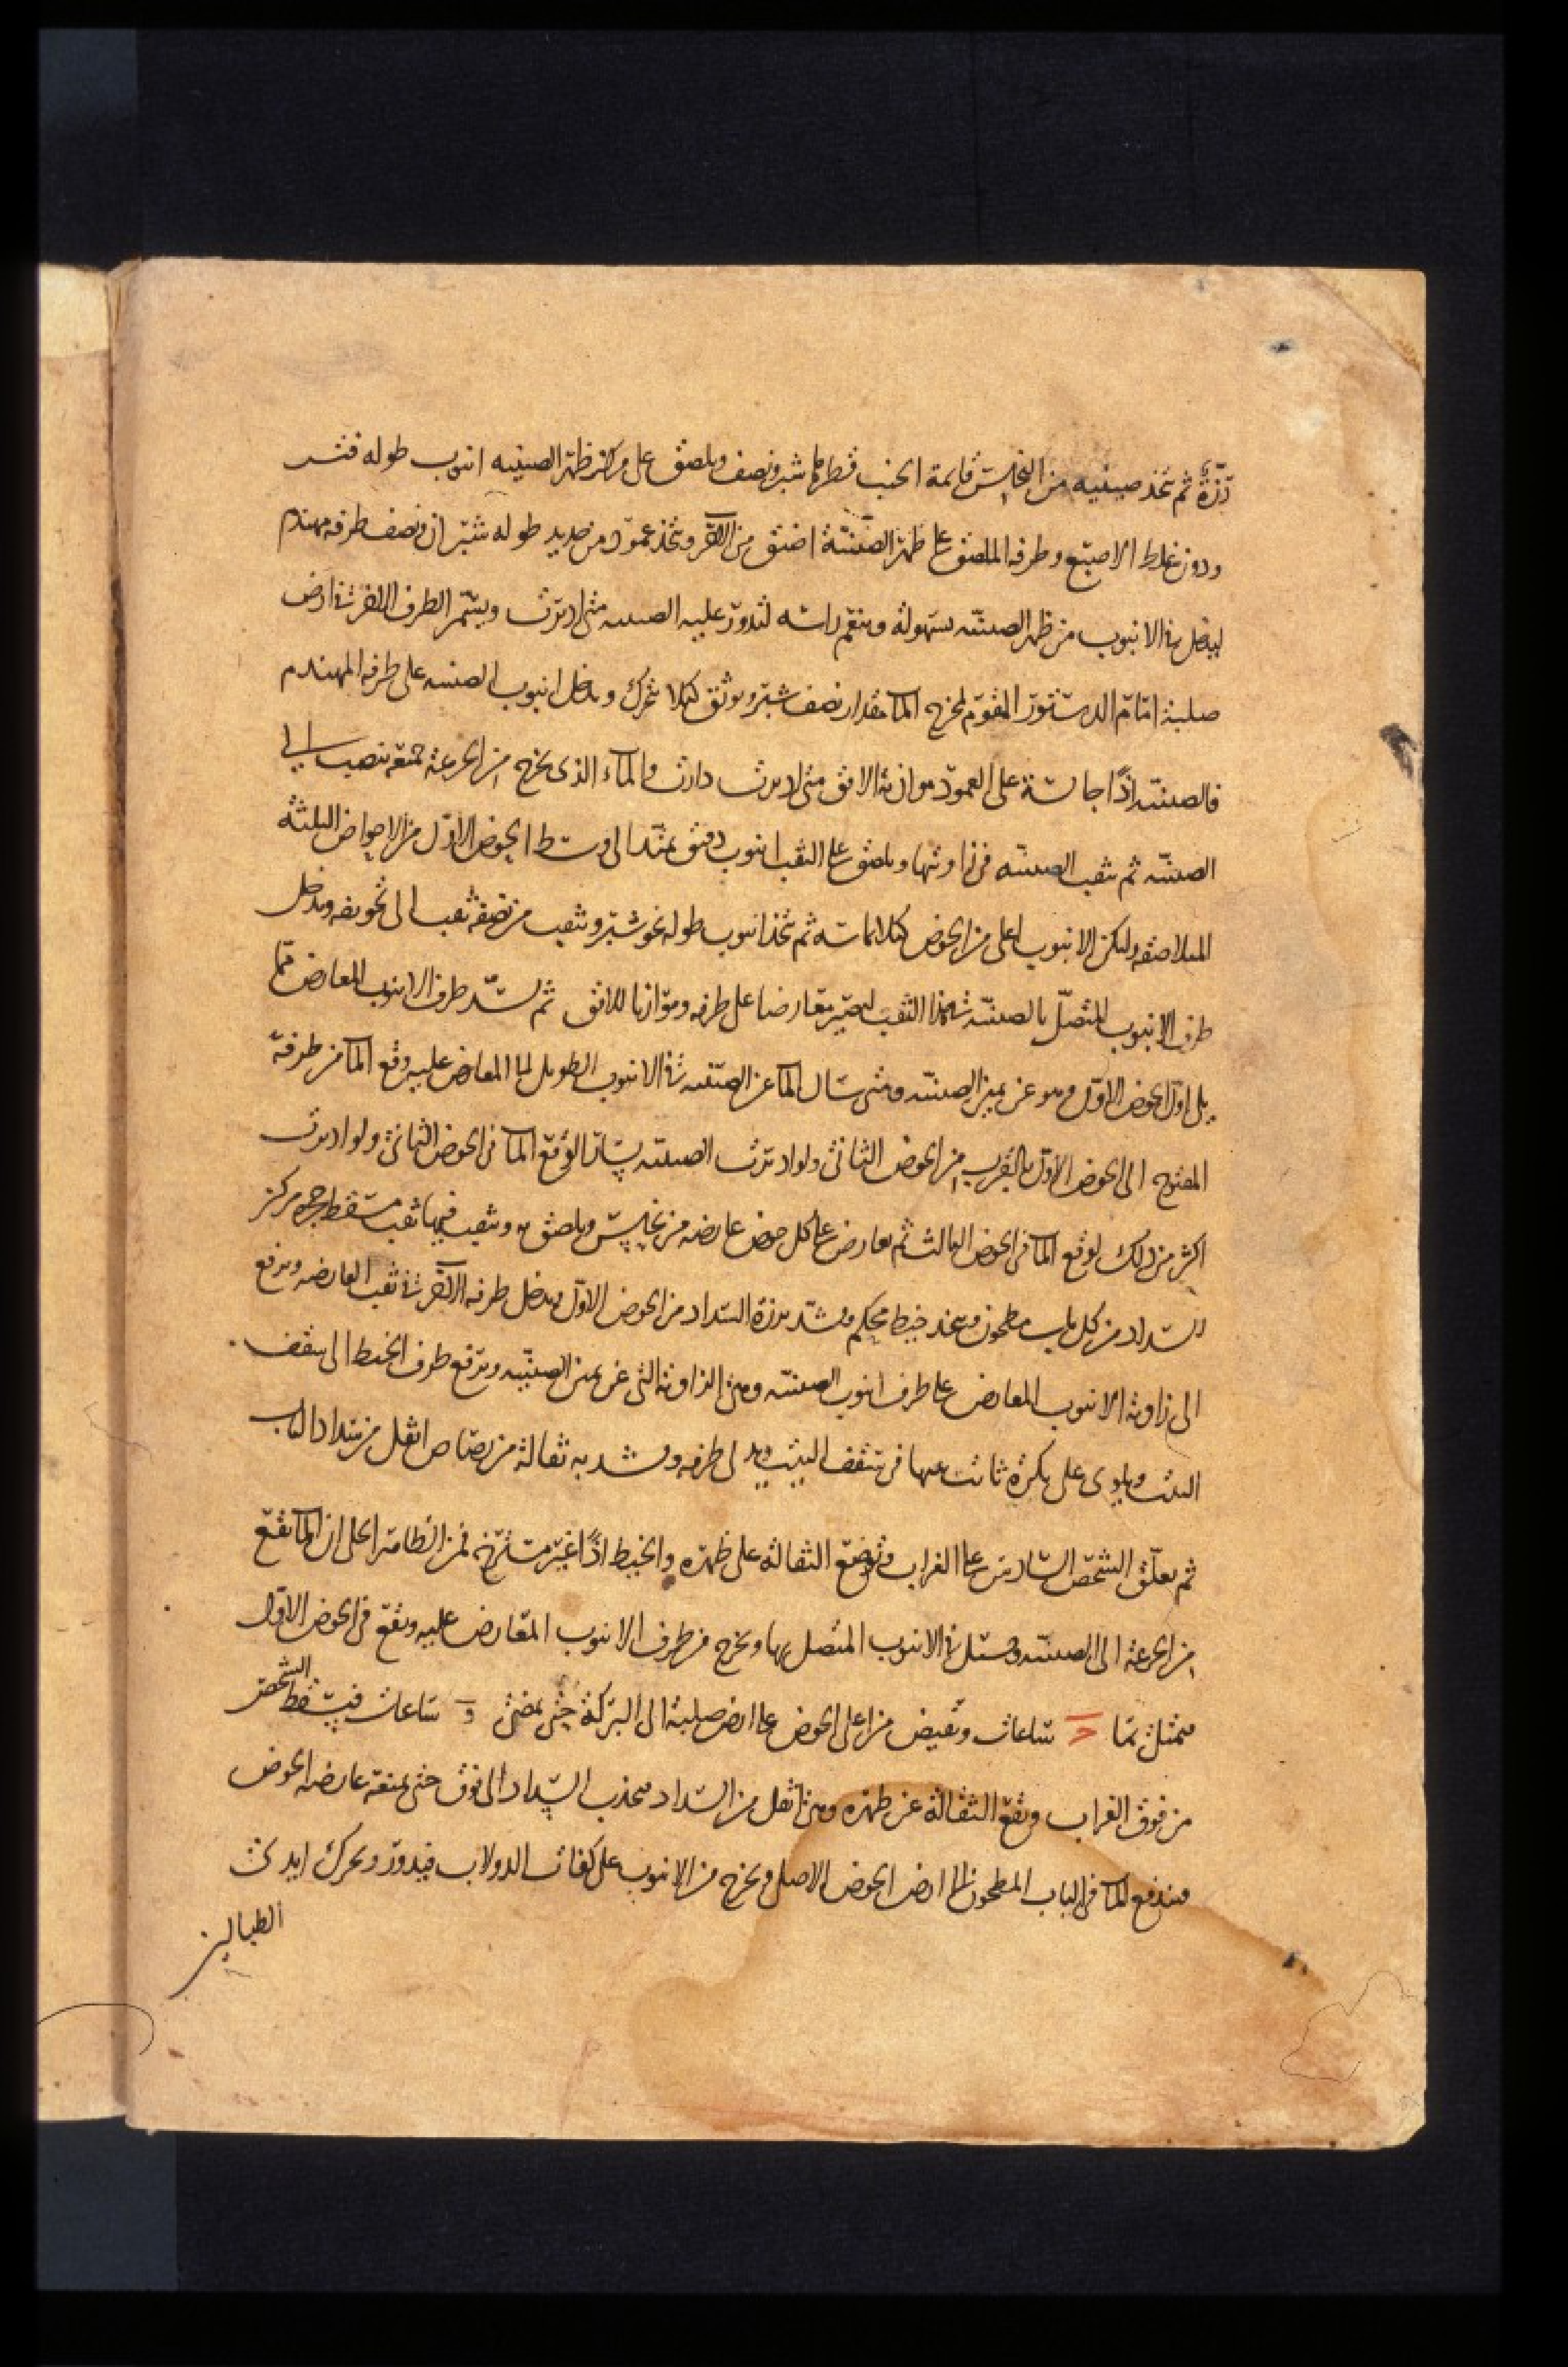 رزة ثم تتخذ صينيه من النحاس قايمة الجنب قطرها شبر ونصف ويلصق على مركز ظهر الصينيه انبوب طوله فتر
ودون غلظ الاصبع وطرفه الملصق على ظهر الصينية اضيق من الاخر ويتخذ عمود من حديد طوله شبران ونصف طرفه مهندم
ليدخل في الانبوب من ظهر الصينيه بسهولة وينعم راسه لتدور عليه الصينيه متى اديرت ويسمر الطرف الاخر في ارض
صلبة امام الدستور المقوم لمخرج الما مقدار نصف شبر ويوثق كيلا يتحرك ويدخل انبوب الصينيه على طرفه المهندم
فالصينيه اذًا جالسة على العمود موازية الافق متى اديرت دارت والماء الذى يخرج من الجزعة جميعه ينصب الى
الصينيه ثم يثقب الصينيه فى زاويتها ويلصق على الثقب انبوب دقيق يمتد الى وسط الحوض الاول من الاحواض الثلثة
المتلاصقه وليكن الانبوب اعلى من الحوض كيلا يماسه ثم يتخذ انبوب طوله نحو شبر ويثقب من نصفه ثقب الى تجويفه ويدخل
طرف الانبوب المتصل بالصينيه في هذا الثقب ليصير معارضا على طرفه وموازيا للافق ثم يسد طرف الانبوب المعارض مما
يلى اول الحوض الاول وهو عن يمين الصينيه ومتى سال الما عن الصينيه في الانبوب الطويل الى المعارض عليه وقع الما من طرفه
المفتوح الى الحوض الاول بالقرب من الحوض الثانى ولو اديرت الصينيه يسارا لوقع الما فى الحوض الثانى ولو اديرت
اكثر من ذلك لوقع الما فى الحوض الثالث ثم يعارض على كل حوض عارضه من نحاس ويلصق به ويثقب فيها ثقب مسقط حجر مركز
السداد من كل باب مطحون ويتخذ خيط محكم ويشد برزة السداد من الحوض الاول ويدخل طرفه الاخر في ثقب العارضه ويرفع
الى زاوية الانبوب المعارض على طرف انبوب الصينيه وهى الزاوية التى عن يمين الصينيه ويرفع طرف الخيط الى سقف
البيت ويلوى على بكرة ثابت سهمها فى سقف البيت ويدلى طرفه ويشد به ثقالة من رصاص اثقل من سداد الباب
ثم يعلق الشخص السادس على الغراب وتوضع الثقالة على ظهره والخيط اذًا غير مسترخ فمن الظاهر الجلى ان الما يقع
من الجزعة الى الصينيه ويسيل في الانبوب المتصل بها ويخرج من طرف الانبوب المعارض عليه ويقع فى الحوض الاول
فيمتلئ بما ساعات ويفيض من اعلى الحوض على ارض صلبة الى البركة حتى يمضى و ساعات فيسقط الشخص
من فوق الغراب وتقع الثقالة عن ظهره وهى اثقل من السداد فيجذب السداد الى فوق حتى يمنعه عارضه الحوض
فيندفع الما فى الباب المطحون الى ارض الحوض الاصل ويخرج من الانبوب على كفات الدولاب فيدور ويحرك ايدى
الطبالين